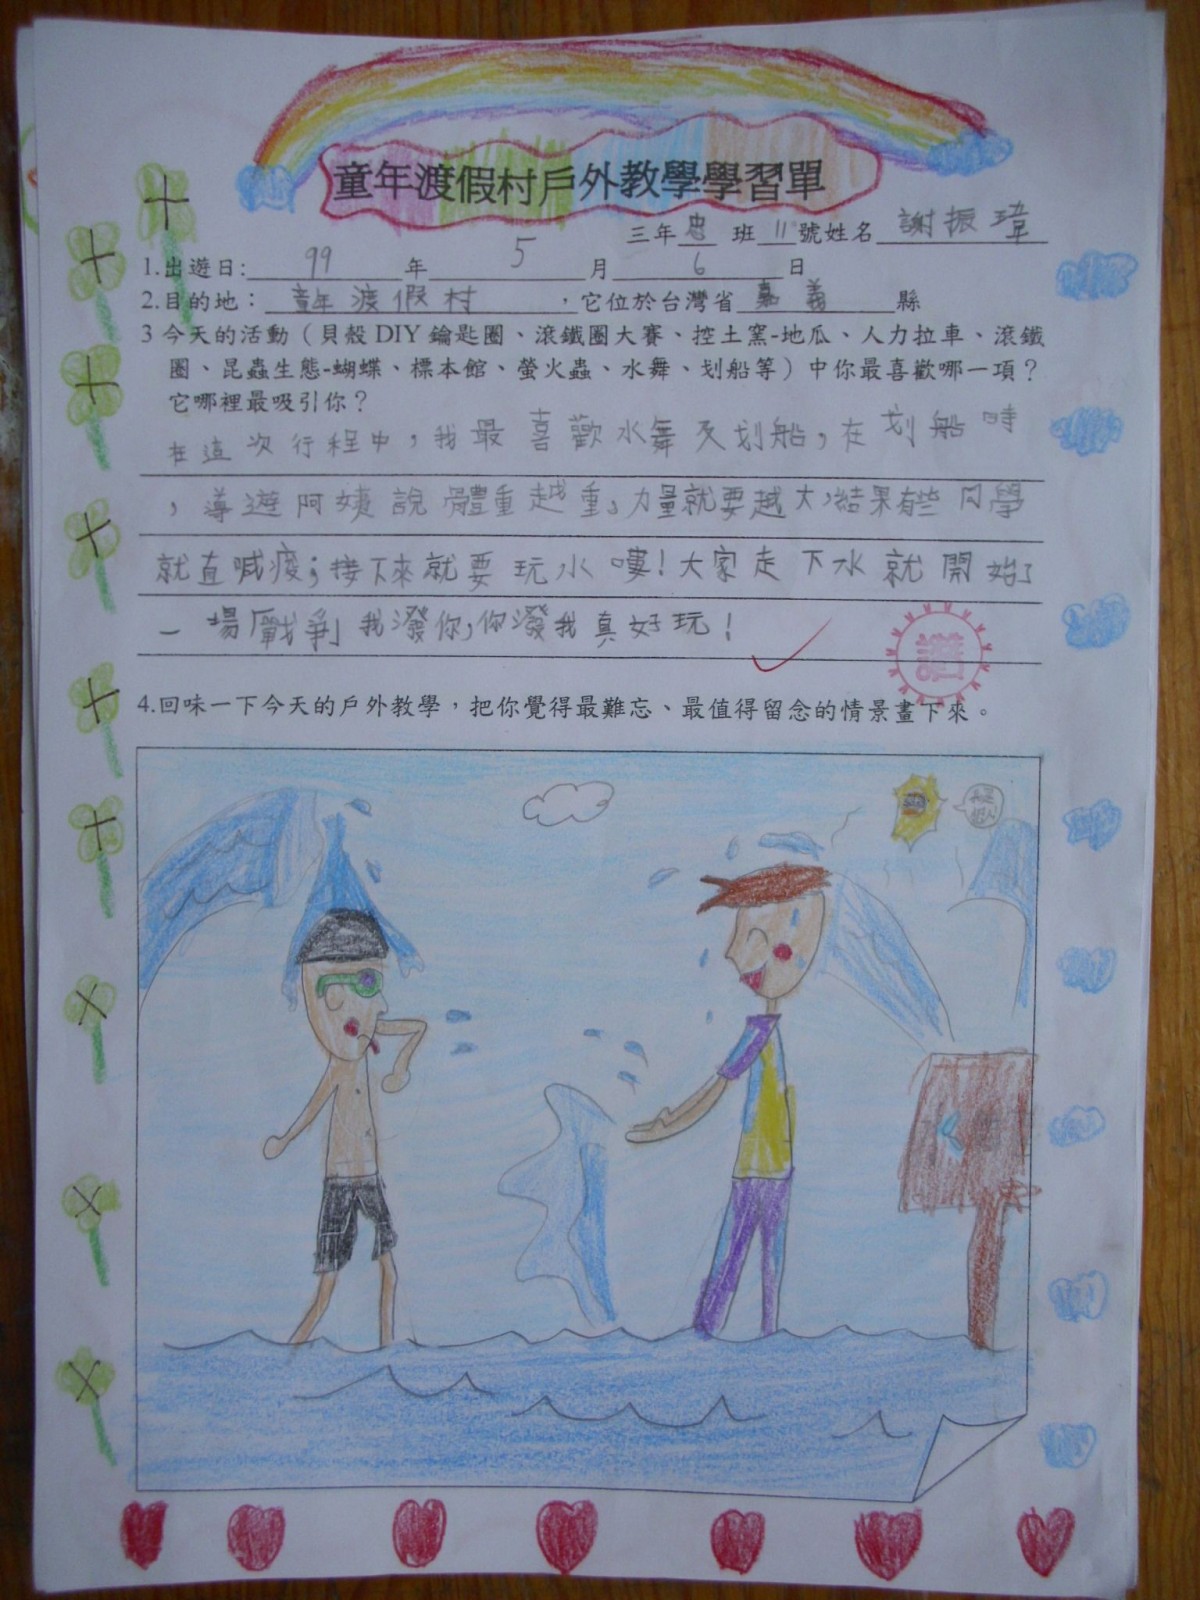 童年渡假村戶外教學學習單
三年忠班11號姓名謝振瑋
1.出遊日:99年5月6日
2.目的地:童年渡假村,它位於台灣省嘉義縣
3今天的活動(貝殼DIY鑰匙圈、滾鐵圈大賽、控土窯-地瓜、人力拉車、滾鐵
圈、昆蟲生態-蝴蝶、標本館、螢火蟲、水舞、划船等)中你最喜歡哪一項?
它哪裡最吸引你?
在這次行程中,我最喜歡水舞及划船,在划船時
,導遊阿婕說體重越重,力量就要越大,結果有些同學
就直喊痠;接下來就要玩水嘍!大家走下水就開始了
一場戰爭我潑你,你潑我真好玩!
4.回味一下今天的戶外教學,把你覺得最難忘、最值得留念的情景畫下來。